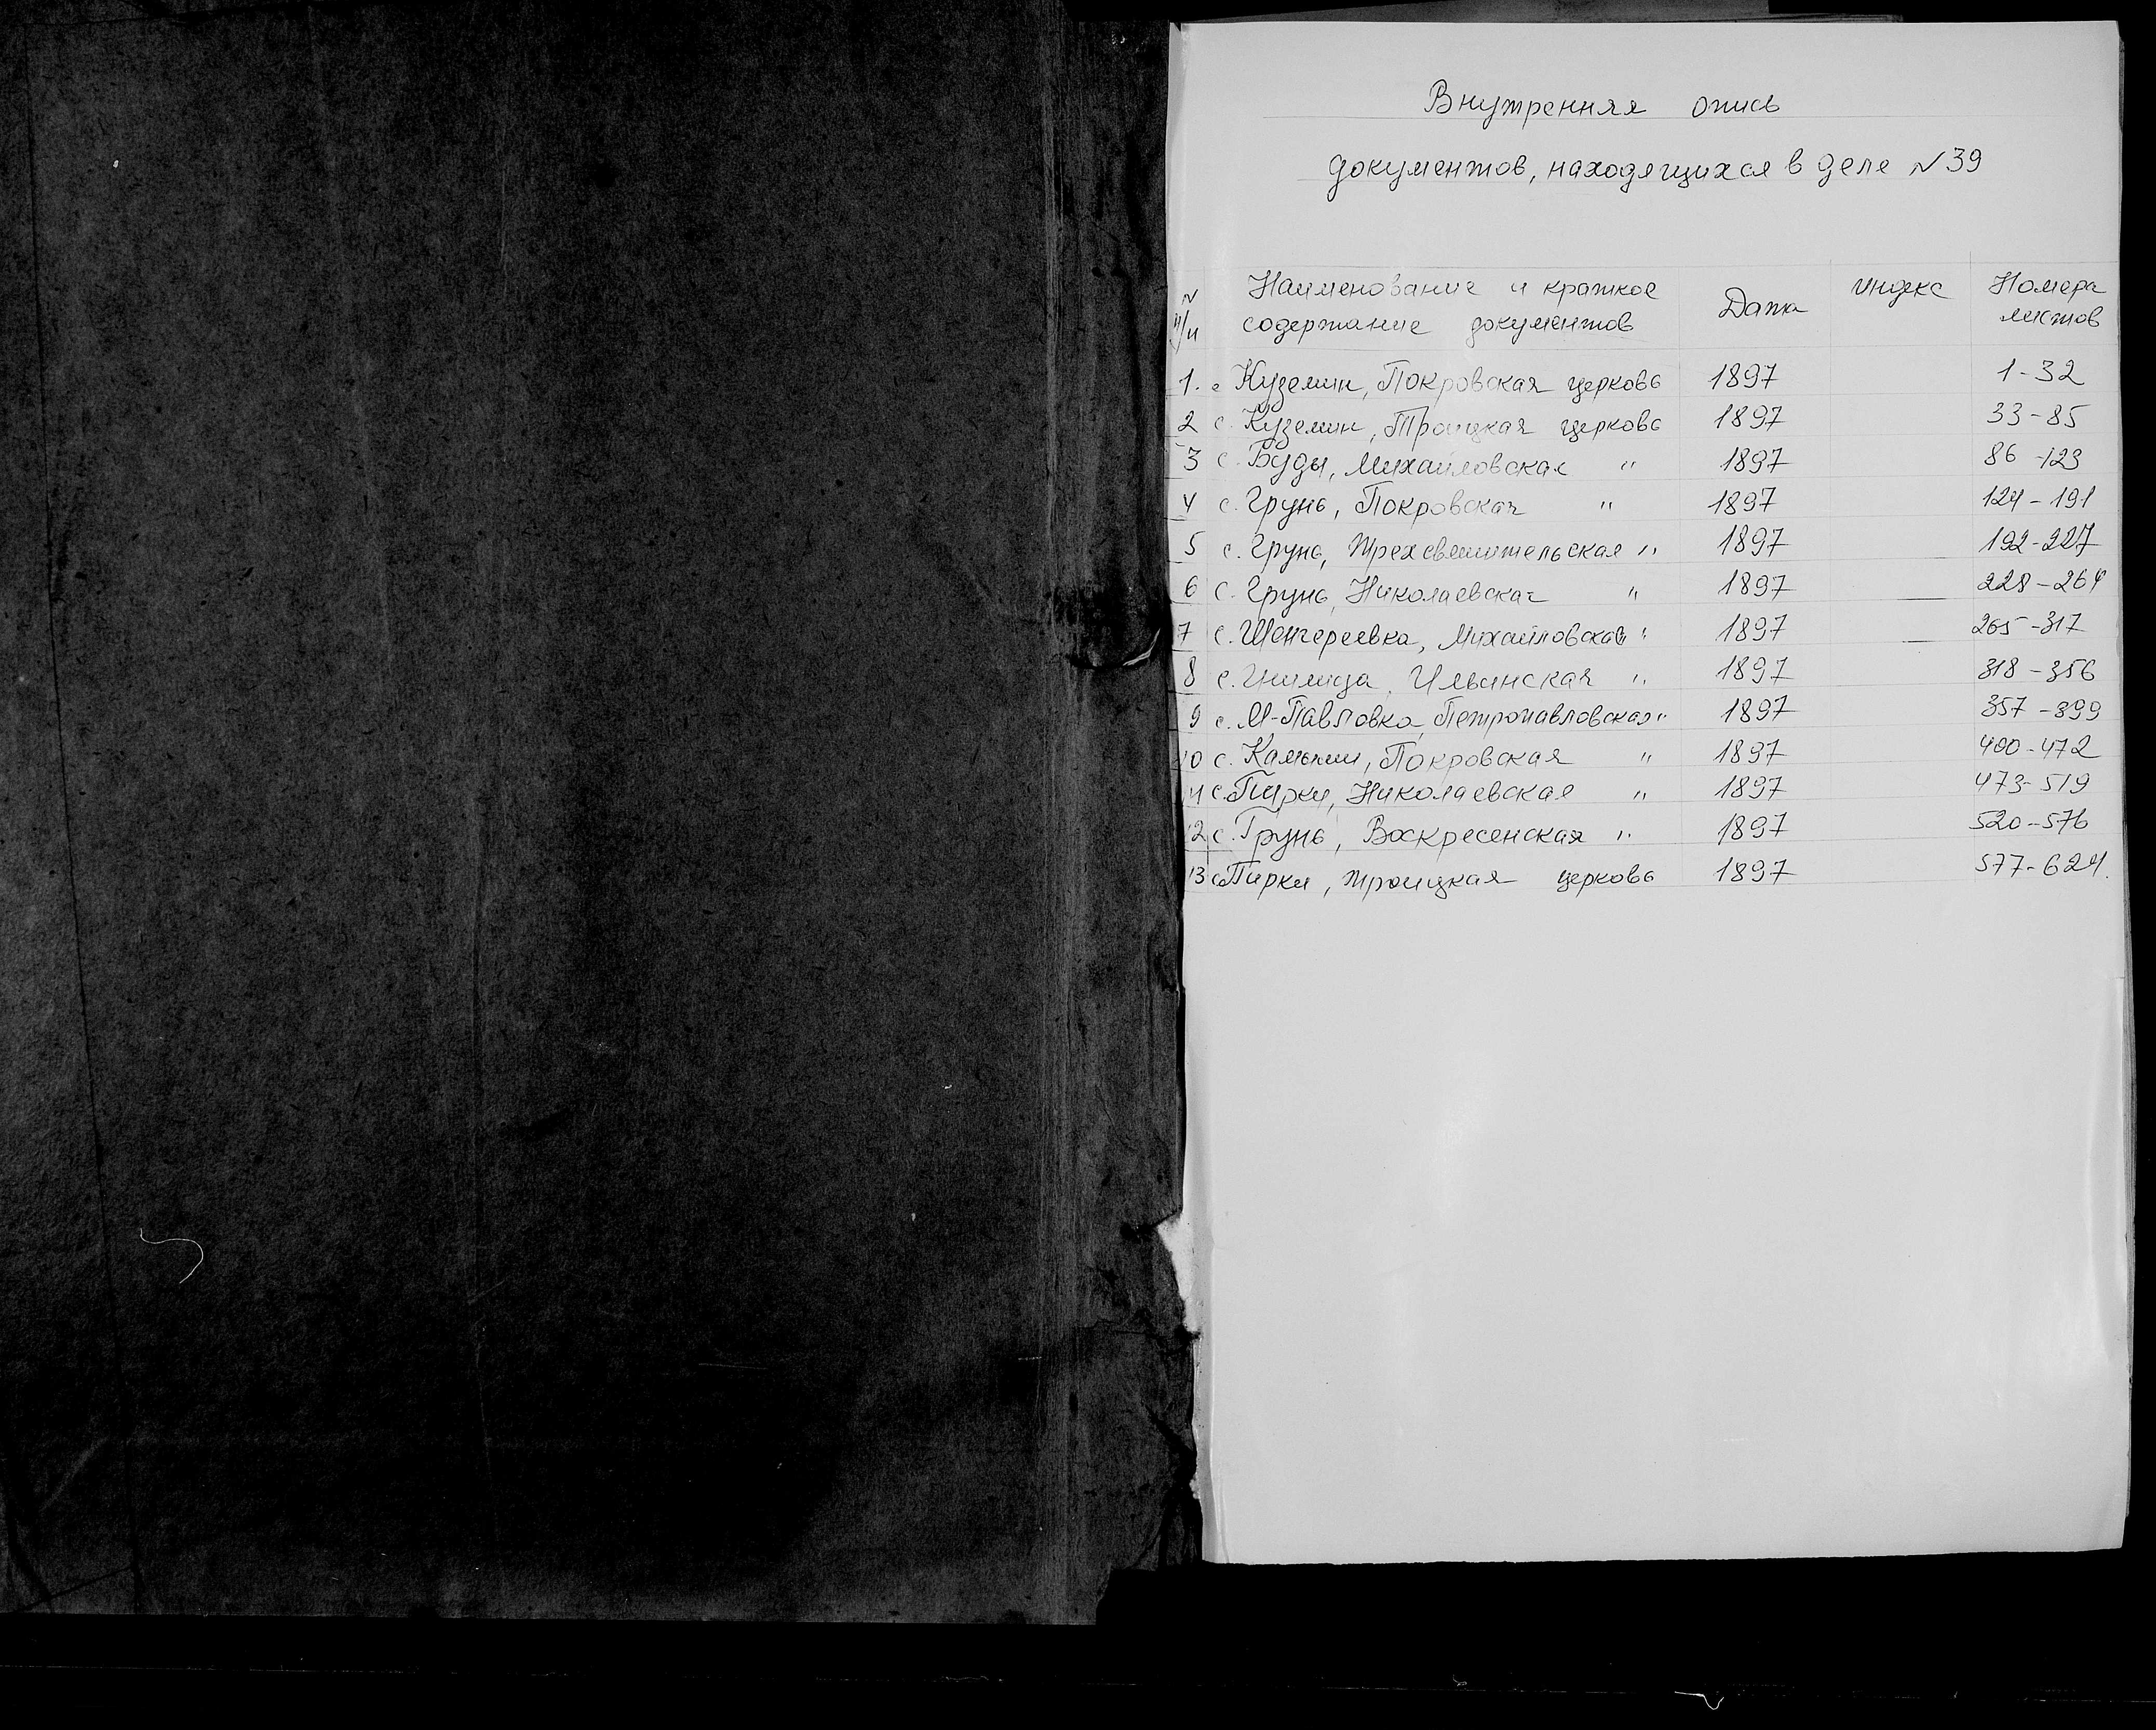 Внутренняя опись
документов, находящихся в деле №39
№ п/п Наименование и краткое содержание документов Дата Индекс Номера листов
1. с Куземин, Покровская церковь 1897 1-32
2 с. Куземин, Троицкая церковь 1897 33-85
3 с. Буды, Михайловская " 1897 86-123
4 с. Грунь, Покровская " 1897 124-191
5 с. Грунь, Трехсвятительская " 1897 192-227
6 с. Грунь, Николаевская " 1897 228-264
7 с. Шенгереевка, Михайловская " 1897 265-317
8 с. Ильинская " 1897 318-356
9 с. М-Павловка, Петропавловская " 1897 357-399
10 с. Покровская " 1897 400-472
11 с. Пирки, Николаевская " 1897 473-519
12 с. Грунь, Воскресенская " 1897 520-576
13 с Пирки, Троицкая церковь 1897 577-624.